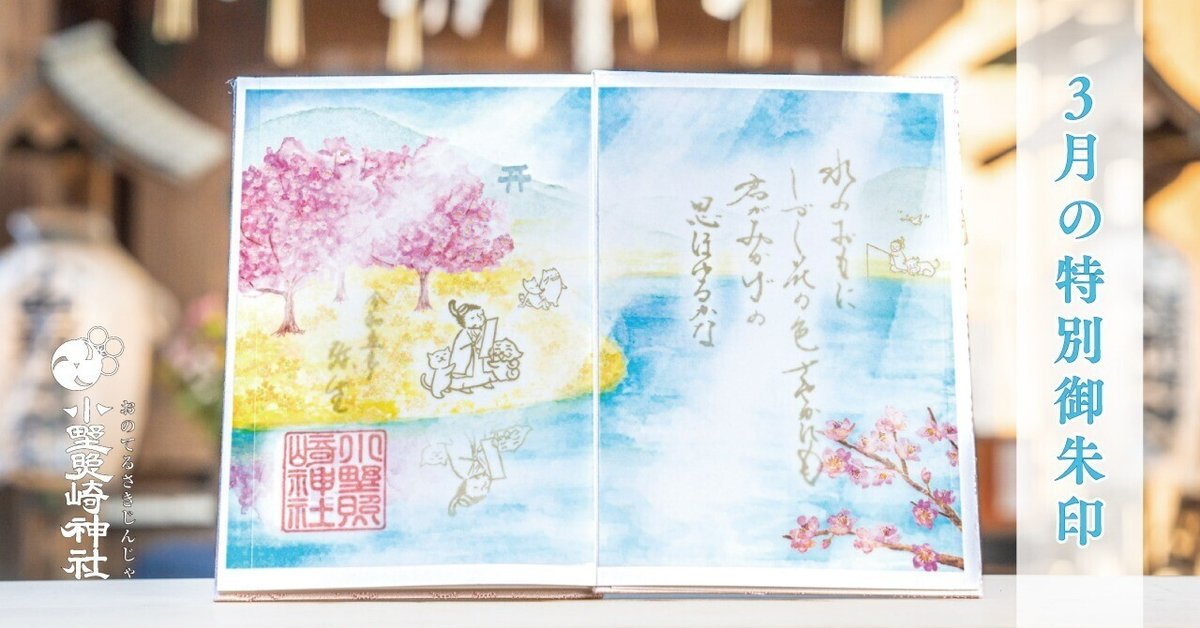 3月の特別御朱印
水のおもに
しづく花の色さやかにも
君がみかげの
思ほゆるかな
弥生
小野照
崎神社
おのてるさきじんじゃ
小野照崎神社